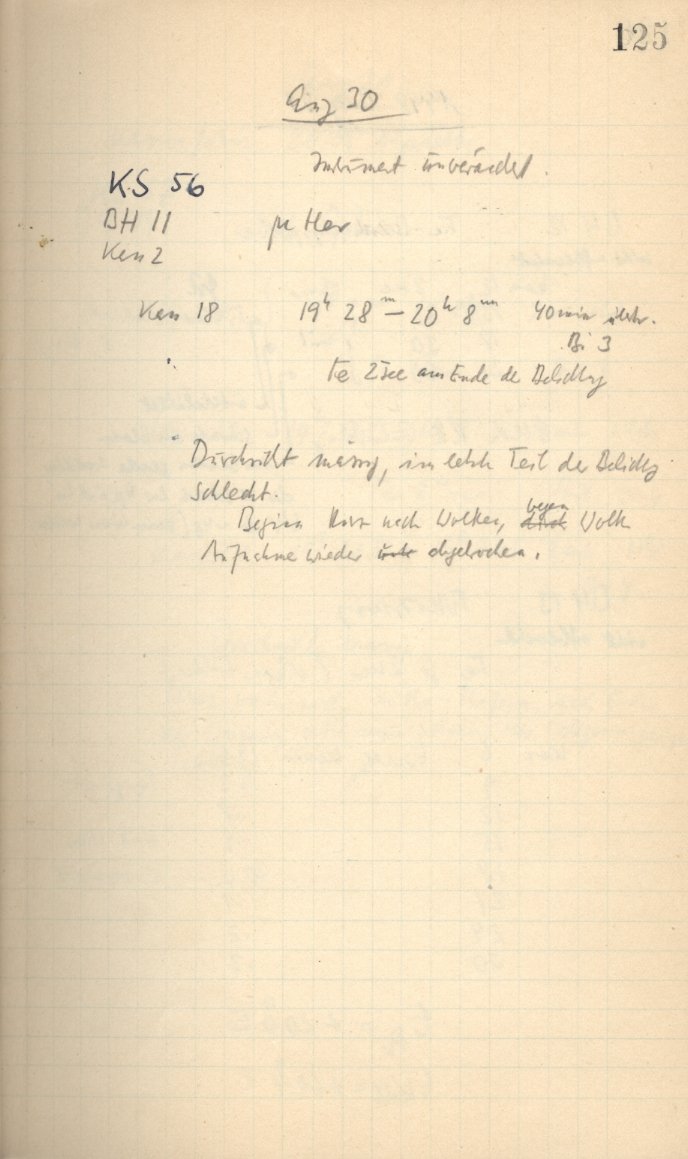 125
Aug 30
Instrument unverändert.
KS 56
BH 11 μ Her
Kas 2
Kas 18 19h 28m – 20h 8m 40 min
Bi 3
Te 2 sec am Ende der Belichtg
Durchsicht mässig, im letzten Teil der Belichtg
schlecht.
Beginn kurz nach Wolken, wegen Wolk
Aufnahme wieder abgebrochen.